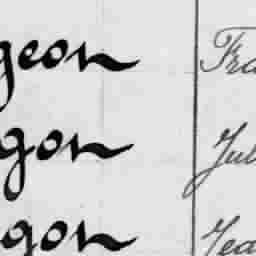 geon Fra
gon Jul
gon Jea